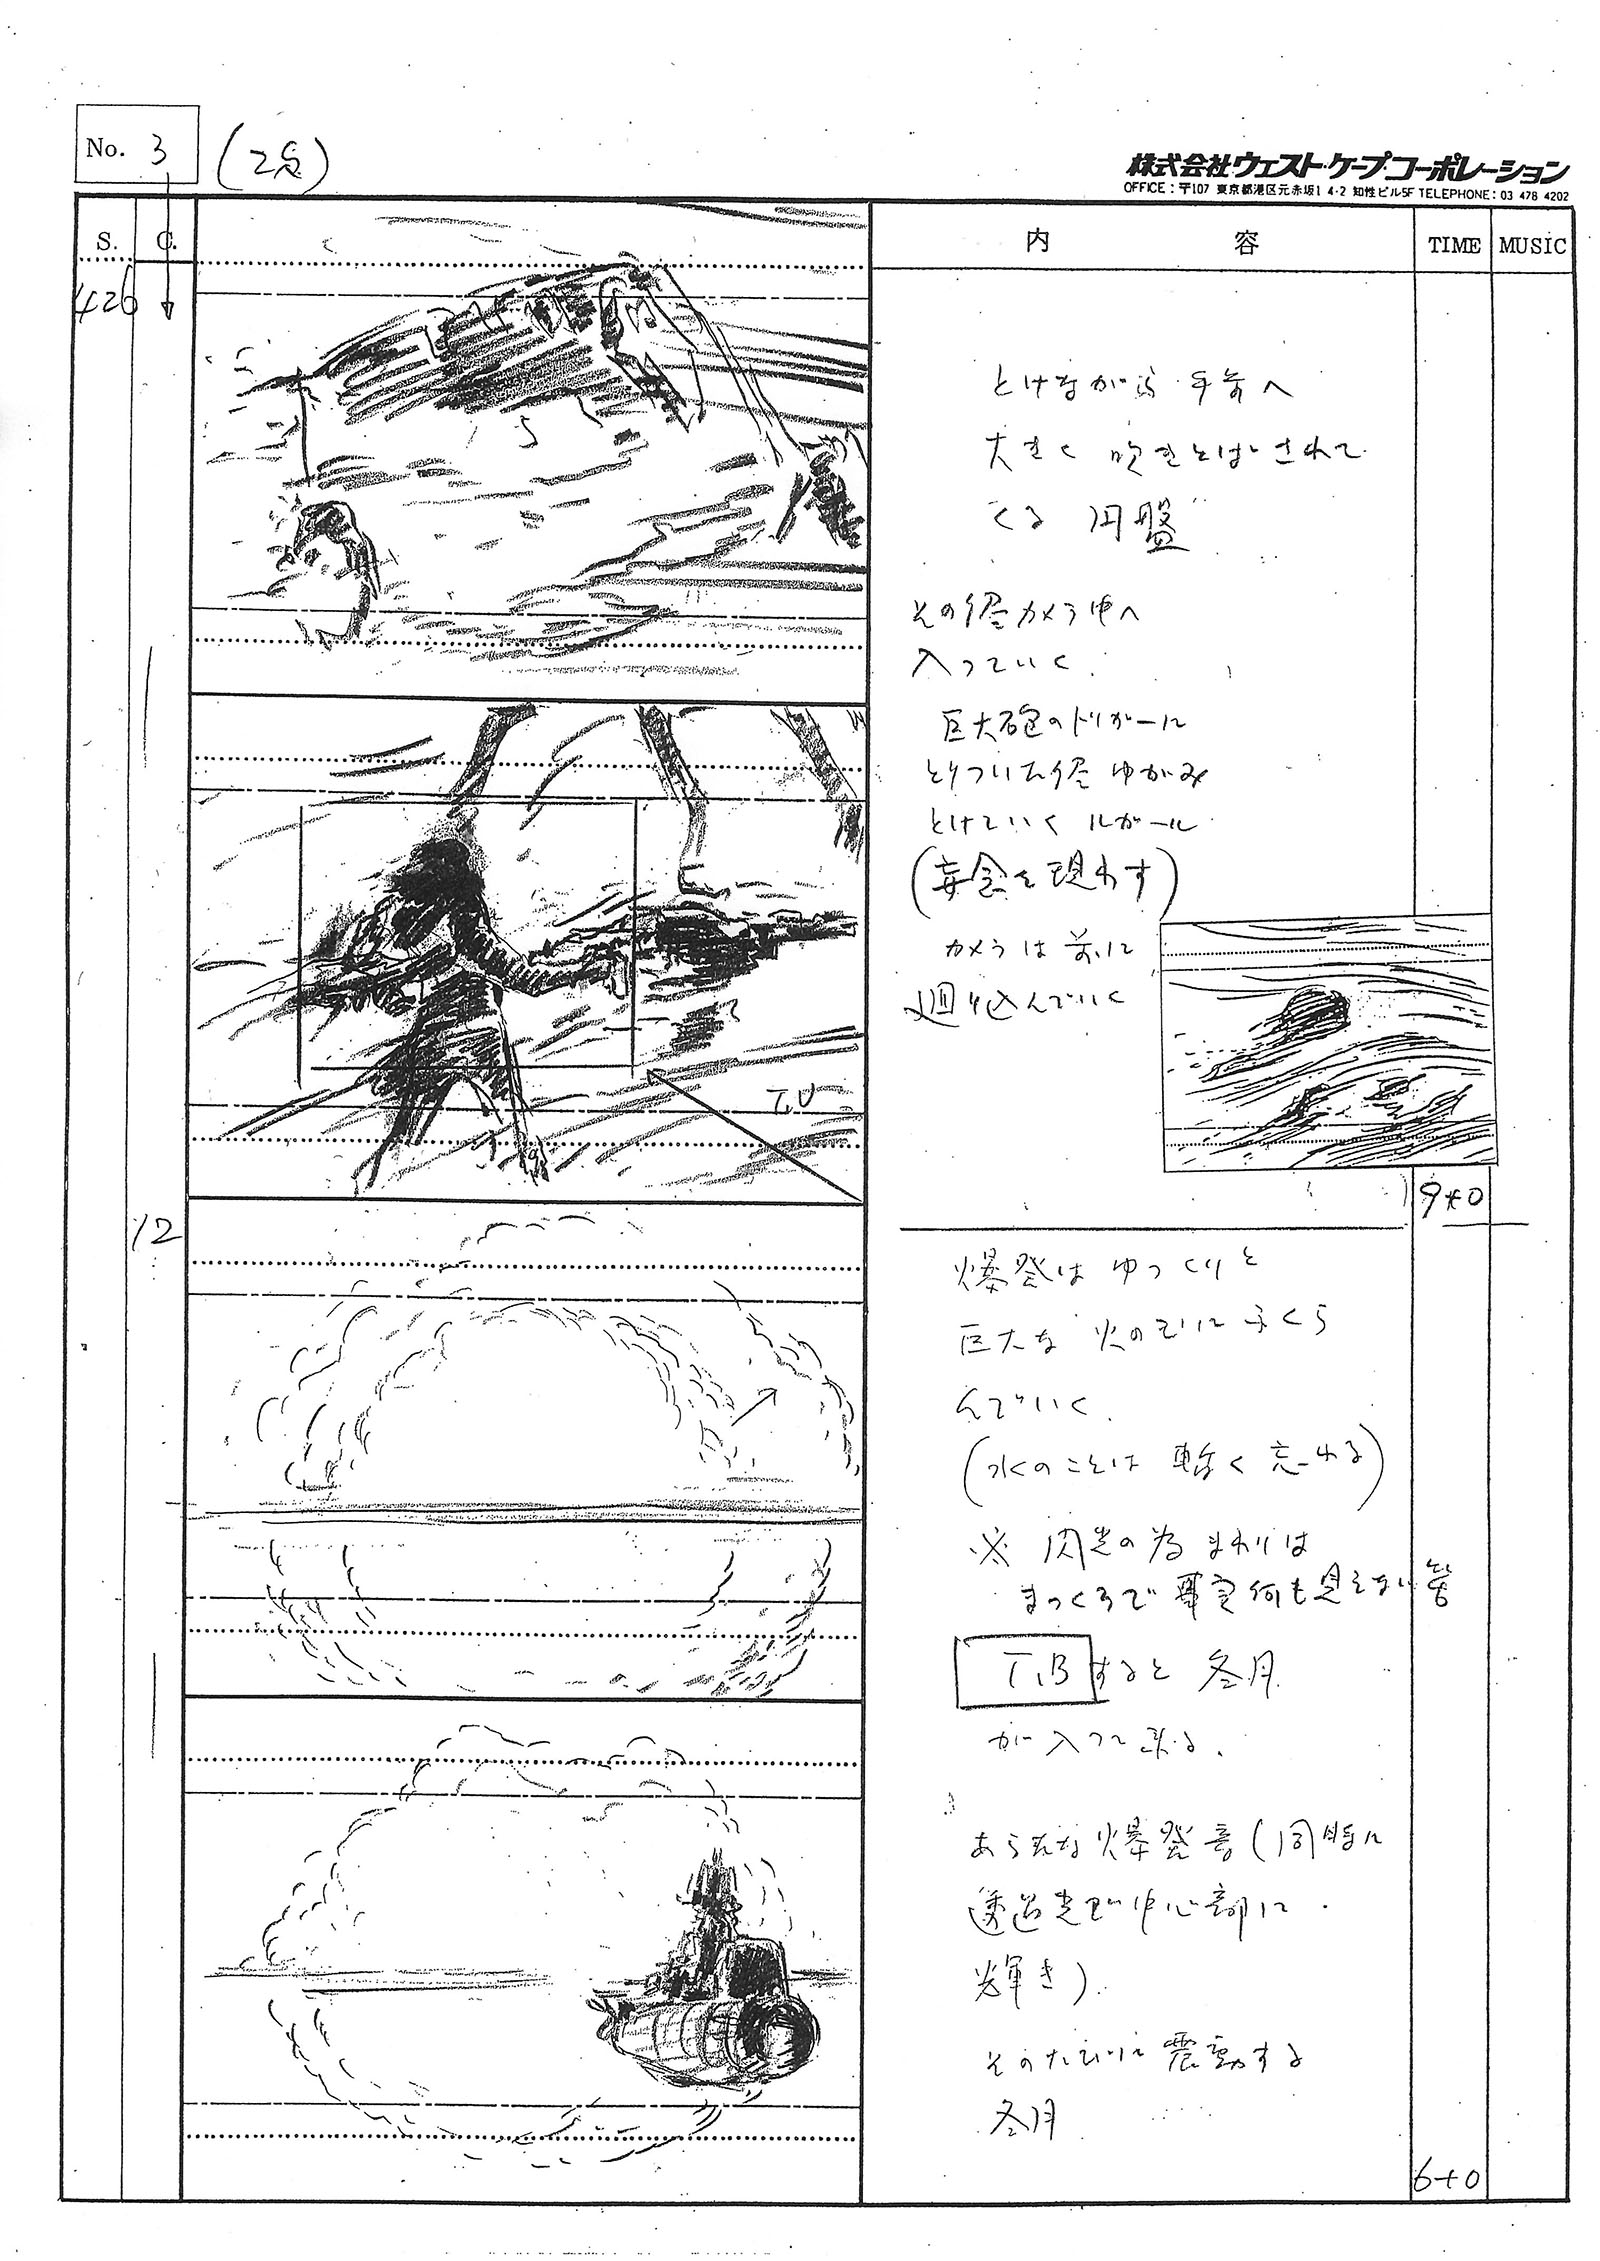 No. 3 (2分)
株式会社ウェスト・ケープ・コーポレーション
OFFICE：〒107 東京都港区元赤坂1 4-2 知性ビル5F TELEPHONE：03 478 4202
S. C. 内容 TIME MUSIC
426
とけながら手前へ
大きく吹きとばされて
くる 円盤
その後カメラ中へ
入っていく
巨大砲のトリガーに
とりついた後 ゆがみ
とけていく ルガール
(妄念を現わす)
カメラは前に
廻り込んでいく
T.U
9+0
12
爆発は ゆっくりと
巨大な 火の玉に ふくら
んでいく
(水のことは 暫く 忘れる)
※ 閃光の為 まわりは
まっくろで 何も見えない 筈
T.B すると 冬月
が入って来る。
あらたな 爆発音 (同時に
透過光で中心部に
輝き)
そのたびに 震動する
冬月
6+0